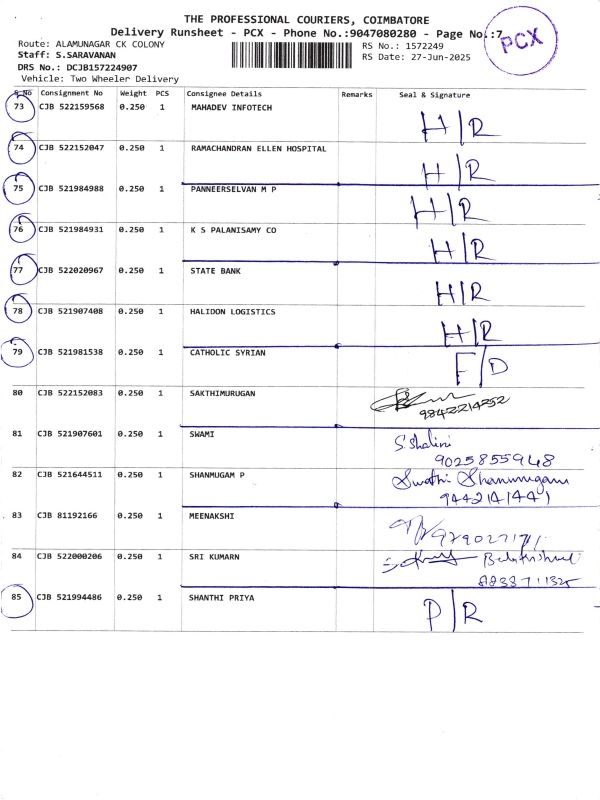 THE PROFESSIONAL COURIERS, COIMBATORE
Delivery Runsheet - PCX - Phone No.:9047080280 - Page No.:7
PCX
Route: ALAMUNAGAR CK COLONY
RS No.: 1572249
Staff: S.SARAVANAN
RS Date: 27-Jun-2025
DRS No.: DCJB157224907
Vehicle: Two Wheeler Delivery
S No Consignment No Weight PCS Consignee Details Remarks Seal & Signature
73 CJB 522159568 0.250 1 MAHADEV INFOTECH
H/R
74 CJB 522152047 0.250 1 RAMACHANDRAN ELLEN HOSPITAL
H/R
75 CJB 521984988 0.250 1 PANNEERSELVAN M P
H/R
76 CJB 521984931 0.250 1 K S PALANISAMY CO
H/R
77 CJB 522020967 0.250 1 STATE BANK
H/R
78 CJB 521907408 0.250 1 HALIDON LOGISTICS
H/R
79 CJB 521981538 0.250 1 CATHOLIC SYRIAN
F/D
80 CJB 522152083 0.250 1 SAKTHIMURUGAN
9842214252
81 CJB 521907601 0.250 1 SWAMI
S.Shalini
9025855948
82 CJB 521644511 0.250 1 SHANMUGAM P
Swathi Shanmugam
9442141441
83 CJB 81192166 0.250 1 MEENAKSHI
84 CJB 522000206 0.250 1 SRI KUMARN
85 CJB 521994486 0.250 1 SHANTHI PRIYA
P/R